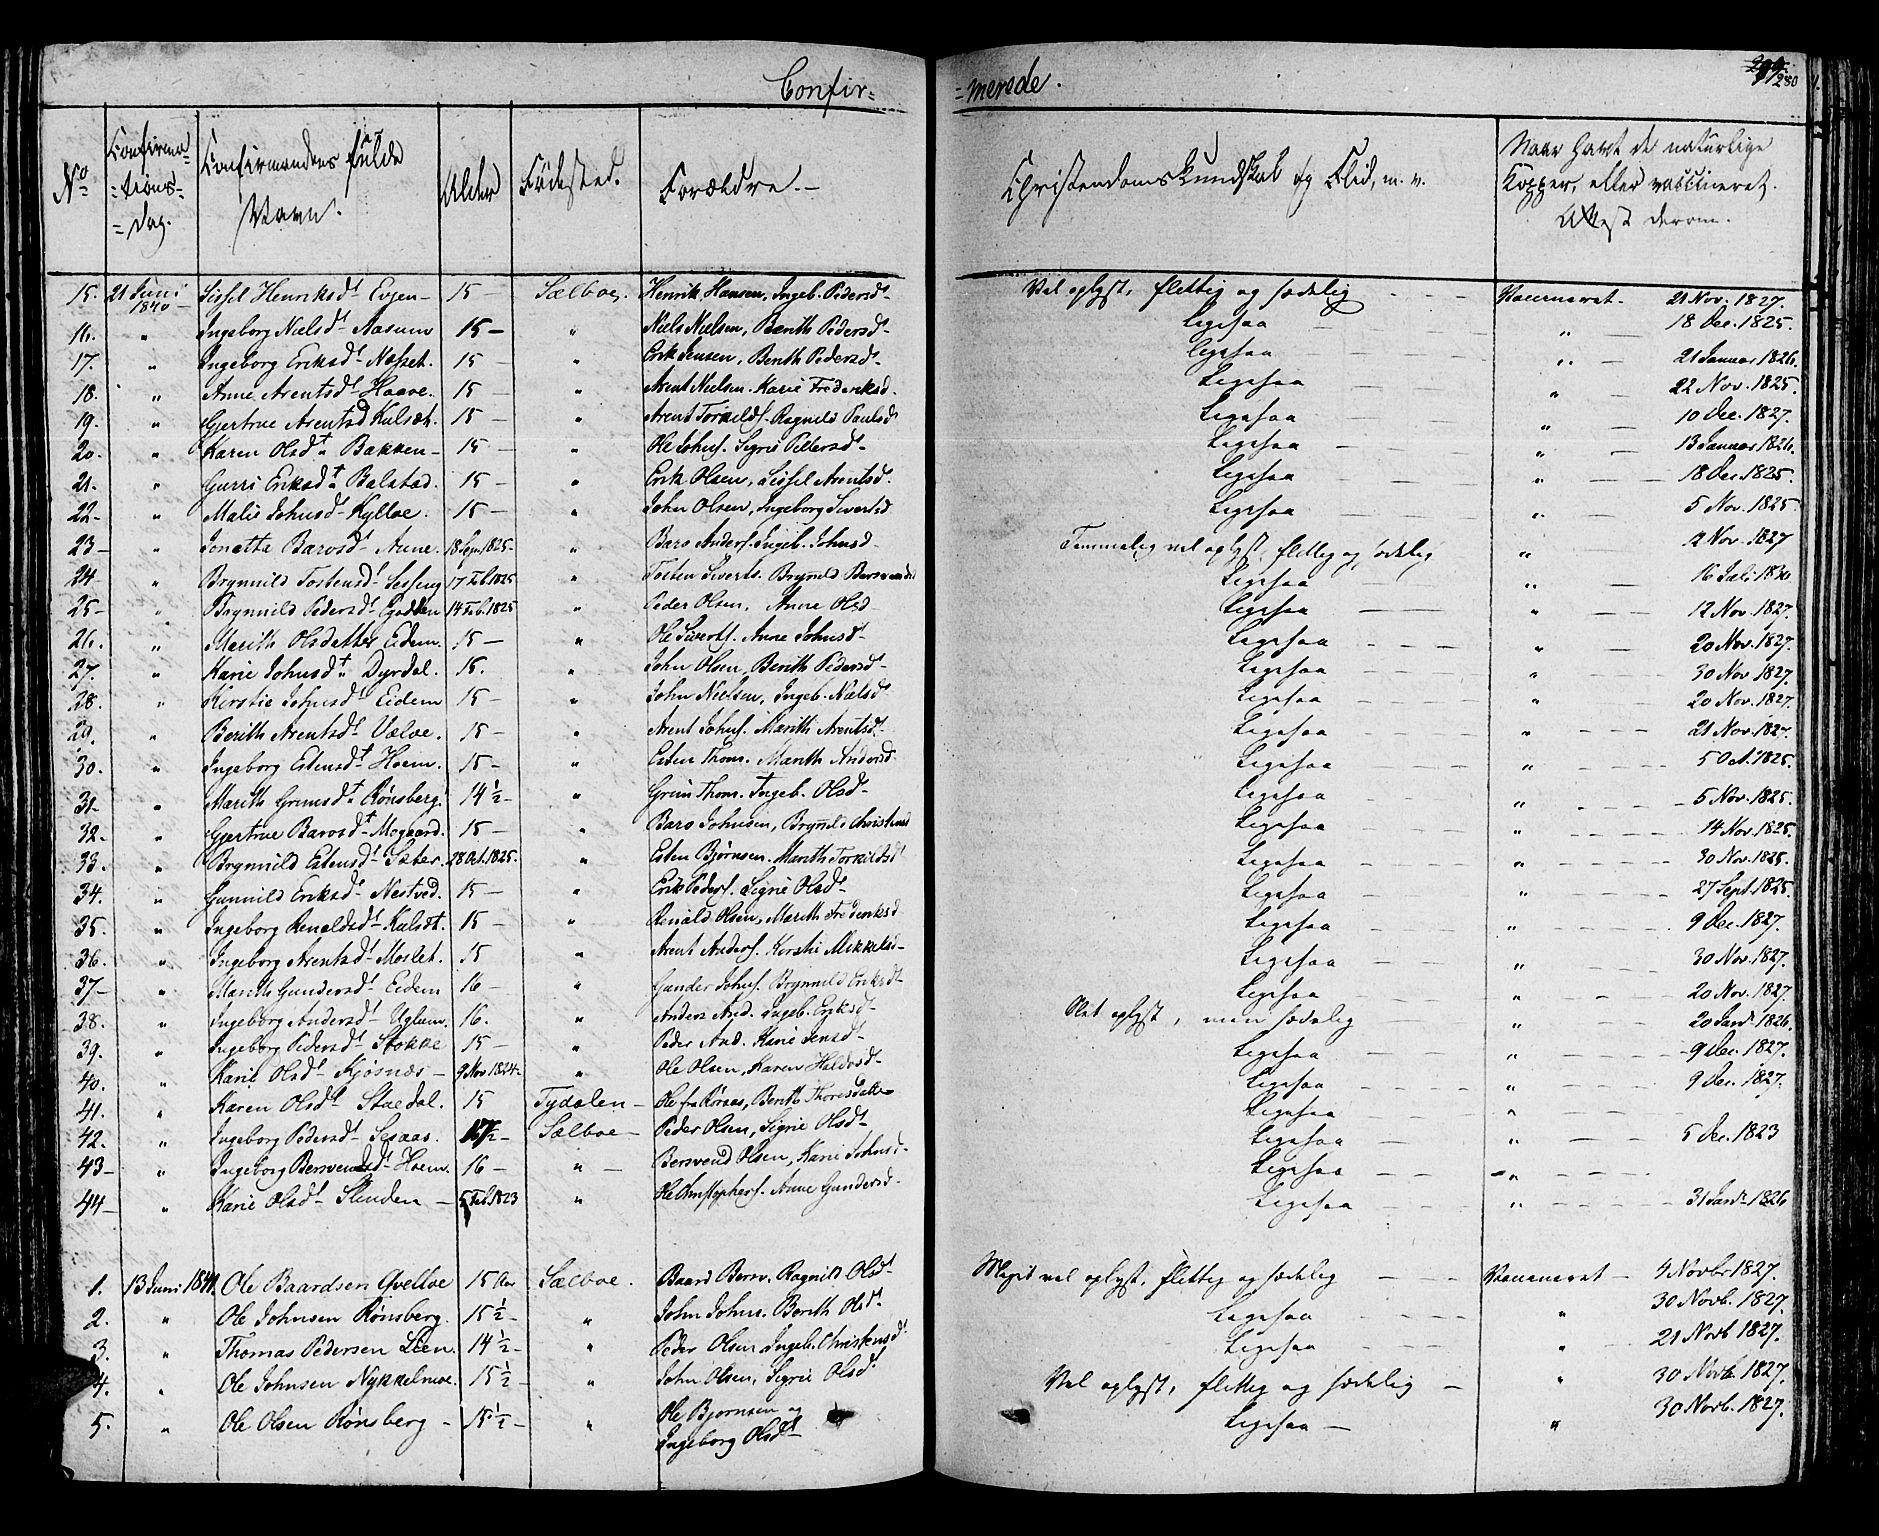 Confir= =merede. 280
No Confirma=tions=Dag. Confirmandens fulde Navn. Alder Fødested. Forældre.— Christendomskundskab og Flid, m. v. Naar havt de naturlige Kopper, eller vaccineret. Attest derom.
15. 21 Juni 1840 Sissel Henriksdt Evjen— 15— Sælboe. Henrik Hansen, Ingeb. Pedersdt- Vel oplyst, flittig og sædelig — Vaccineret. 21 Nov. 1827.
16. " Ingeborg Nielsdt Aasum 15— " Niels Nielsen, Berith Pedersdt- Ligesaa — " — 18 Dec. 1825.
17. " Ingeborg Eriksdt Næsset. 15— " Erik Jensen, Berith Pedersdt- Ligesaa — " — 21 Januar 1826.
18. " Anne Arentsdt Haave. 15— " Arent Nielsen. Karie Frederiksd. Ligesaa — " — 22 Nov. 1825.
19. " Gjertrue Arentsd Kulsæt. 15— " Arent Torkelds. Ragnild Paulsdt Ligesaa — " — 10 Dec. 1827.
20. " Karen Olsdt Bakken— 15— " Ole Johns. Sigrie Pettersdt- Ligesaa — " — 13 Januar 1826.
21. " Gurri Eriksdt Balstad. 15— " Erik Olsen, Sissel Arentsdt. Ligesaa — " — 18 Dec 1825.
22— " Malie Johnsdt Kylloe. 15— " John Olsen, Ingeborg Sivertsd Ligesaa — " — 5 Nov. 1825
23— " Jonetta Barosdt Aune. 18 Sepr 1825- " Baro Anders. Ingeb. Johnsd Temmelig vel oplyst, flittig og sædelig " — 2 Nov. 1827
24— " Brynnild Tostensdt Sesseng 17 Feb. 1825 " Tosten Siverts. Brynild Bersvendsd Ligesaa " — 16 Juli 1830.
25— " Brynnild Pedersdt 14 Feb. 1825 " Peder Olsen, Anne Olsd Ligesaa — " — 12 Nov. 1827.
26. " Marith Olsdatter Eidem. 15— " Ole Siverts. Anne Johnsdt- Ligesaa — " — 20 Nov. 1827.
27. " Karie Johnsdt Dyrdal. 15. " John Olsen, Berith Pedersdt- Ligesaa — " — 30 Nov 1827.
28. " Kirstie Johnsdt Eidem 15— " John Nielsen, Ingeb. Nielsdt Ligesaa — " — 20 Nov. 1827.
29. " Berith Arentsdt Uæloe. 15— " Arent Johns. Marith Arentsdt- Ligesaa — " — 21 Nov. 1827.
30. " Ingeborg Estensdt Hoem. 15— " Esten Thom. Marith Andersd Ligesaa — " — 5 Oct. 1825.
31— " Marith Grimsdt Rønsberg. 14 ½— " Grim Thom. Ingeb. Olsdt- Ligesaa — " — 5 Nov. 1825.
32. " Gjertrue Barosdt Mogaard. 15— " Baro Johnsen, Brynild Christensd Ligesaa — " — 14 Nov. 1825.
33. " Brynnild Estensdt Sæter. 28 Oct. 1825. " Esten Bjørnsen. Marith Torkildsdt Ligesaa — " — 30 Nov. 1825.
34. " Gunnild Eriksdt Nestved. 15— " Erik Peders. Sigrie Olsdt- Ligesaa — " — 27 Sept. 1825.
35. " Ingeborg Renaldsdt Kulsdt. 15— " Renald Olsen, Marith Frederiksd Ligesaa — " — 9 Dec. 1827.
36. " Ingeborg Arentsdt Moslet. 15 " Arent Anders. Kirstie Mikkelsd- Ligesaa — " — 30 Nov. 1827.
37— " Marith Gundersdt Eidem 16— " Gunder Johns. Brynnild Eriksdt- Ligesaa — " — 20 Nov. 1827
38. " Ingeborg Andersdt Uglem. 16. " Anders And. Ingeb. Eriksdt- Slet oplyst, men sædelig " — 20 Jandr 1826.
39. " Ingeborg Pedersdt Stokke 15— " Peder And. Karie Jensdt- Ligesaa — " — 9 Dec. 1827.
40. " Karie Olsdt Kjøsnæs— 9 Nov 1824- " Ole Olsen, Karen Haldosdt- Ligesaa — " — 9 Dec. 1827.
41. " Karen Olsdt Stuedal. 15 Tydalen— Ole fra Røraas, Berith Thoresdatter Ligesaa — "
42. " Ingeborg Pedersdt Sesaas. 17½— Sælboe— Peder Olsen, Sigrie Olsdt- Ligesaa — " — 5 Dec. 1823
43— " Ingeborg Bersvendsdt Hoem. 16— " — Bersvend Olsen, Karie Johnsd- Ligesaa — "
44— " Karie Olsdt Slinden— 5 Feb. 1823 " Ole Christophers. Anne Gundersd- Ligesaa — " — 31 Jandr 1826
1. 13 Juni 1841. Ole Baardsen Qvelloe 15 Aar Sælboe. Baard Bersv. Ragnild Olsdt- Meget vel oplyst, flittig og sædelig — Vaccineret— 4 Novbr 1827.
2. " Ole Johnsen Rønsberg. 15½— " John Johns. Berith Olsdt. Ligesaa — " 30 Novb. 1827.
3. " Thomas Pedersen Lien. 14½— " Peder Olsen Ingeb. Christensdt. Ligesaa — " 21 Novb 1827.
4. " Ole Johnsen Nykkelmoe. 15½— " John Olsen, Sigrie Olsdt Vel oplyst, flittig og sædelig — " 30 Novb. 1827.
5. " Ole Olsen Rønsberg— 15½— " Ole Bjørnsen og Ligesaa — " 30 Novb. 1827.
Ingeborg Olsdt